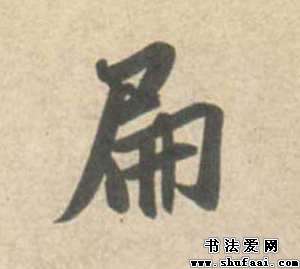 扁
书法爱网
www.shufaai.com